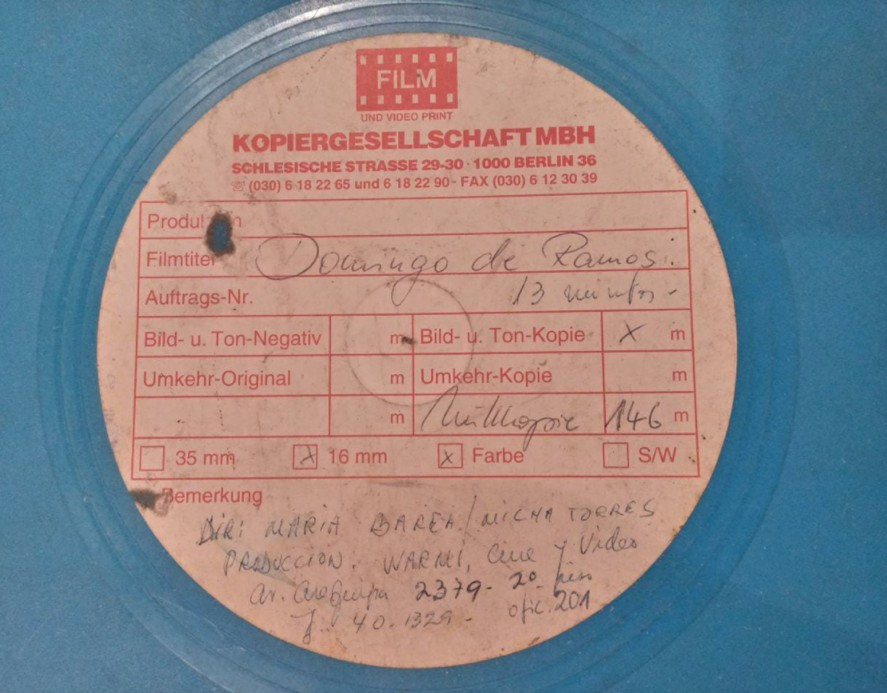 FILM
UND VIDEO PRINT
KOPIERGESELLSCHAFT MBH
SCHLESISCHE STRASSE 29-30 · 1000 BERLIN 36
☏ (030) 6 18 22 65 und 6 18 22 90 - FAX (030) 6 12 30 39
Filmtitel Domingo de Ramos.
Auftrags-Nr. 13 minutos -
Bild- u. Ton-Negativ m Bild- u. Ton-Kopie X m
Umkehr-Original m Umkehr-Kopie m
m Nullkopie 146 m
35 mm X 16 mm X Farbe S/W
Bemerkung
DIR: MARIA BAREA / MICHA TORRES
PRODUCCION. WARMI, Cine y Video
Av. Arequipa 2379 - 20 piso
40.1329 - ofic. 201